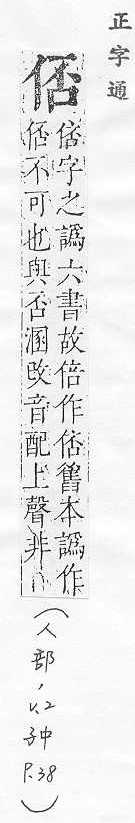 正字通
俖
字之譌六書故倍作舊本譌作
俖不可也與否溷改音配上聲非
(人部,v.2
子中
P.38)